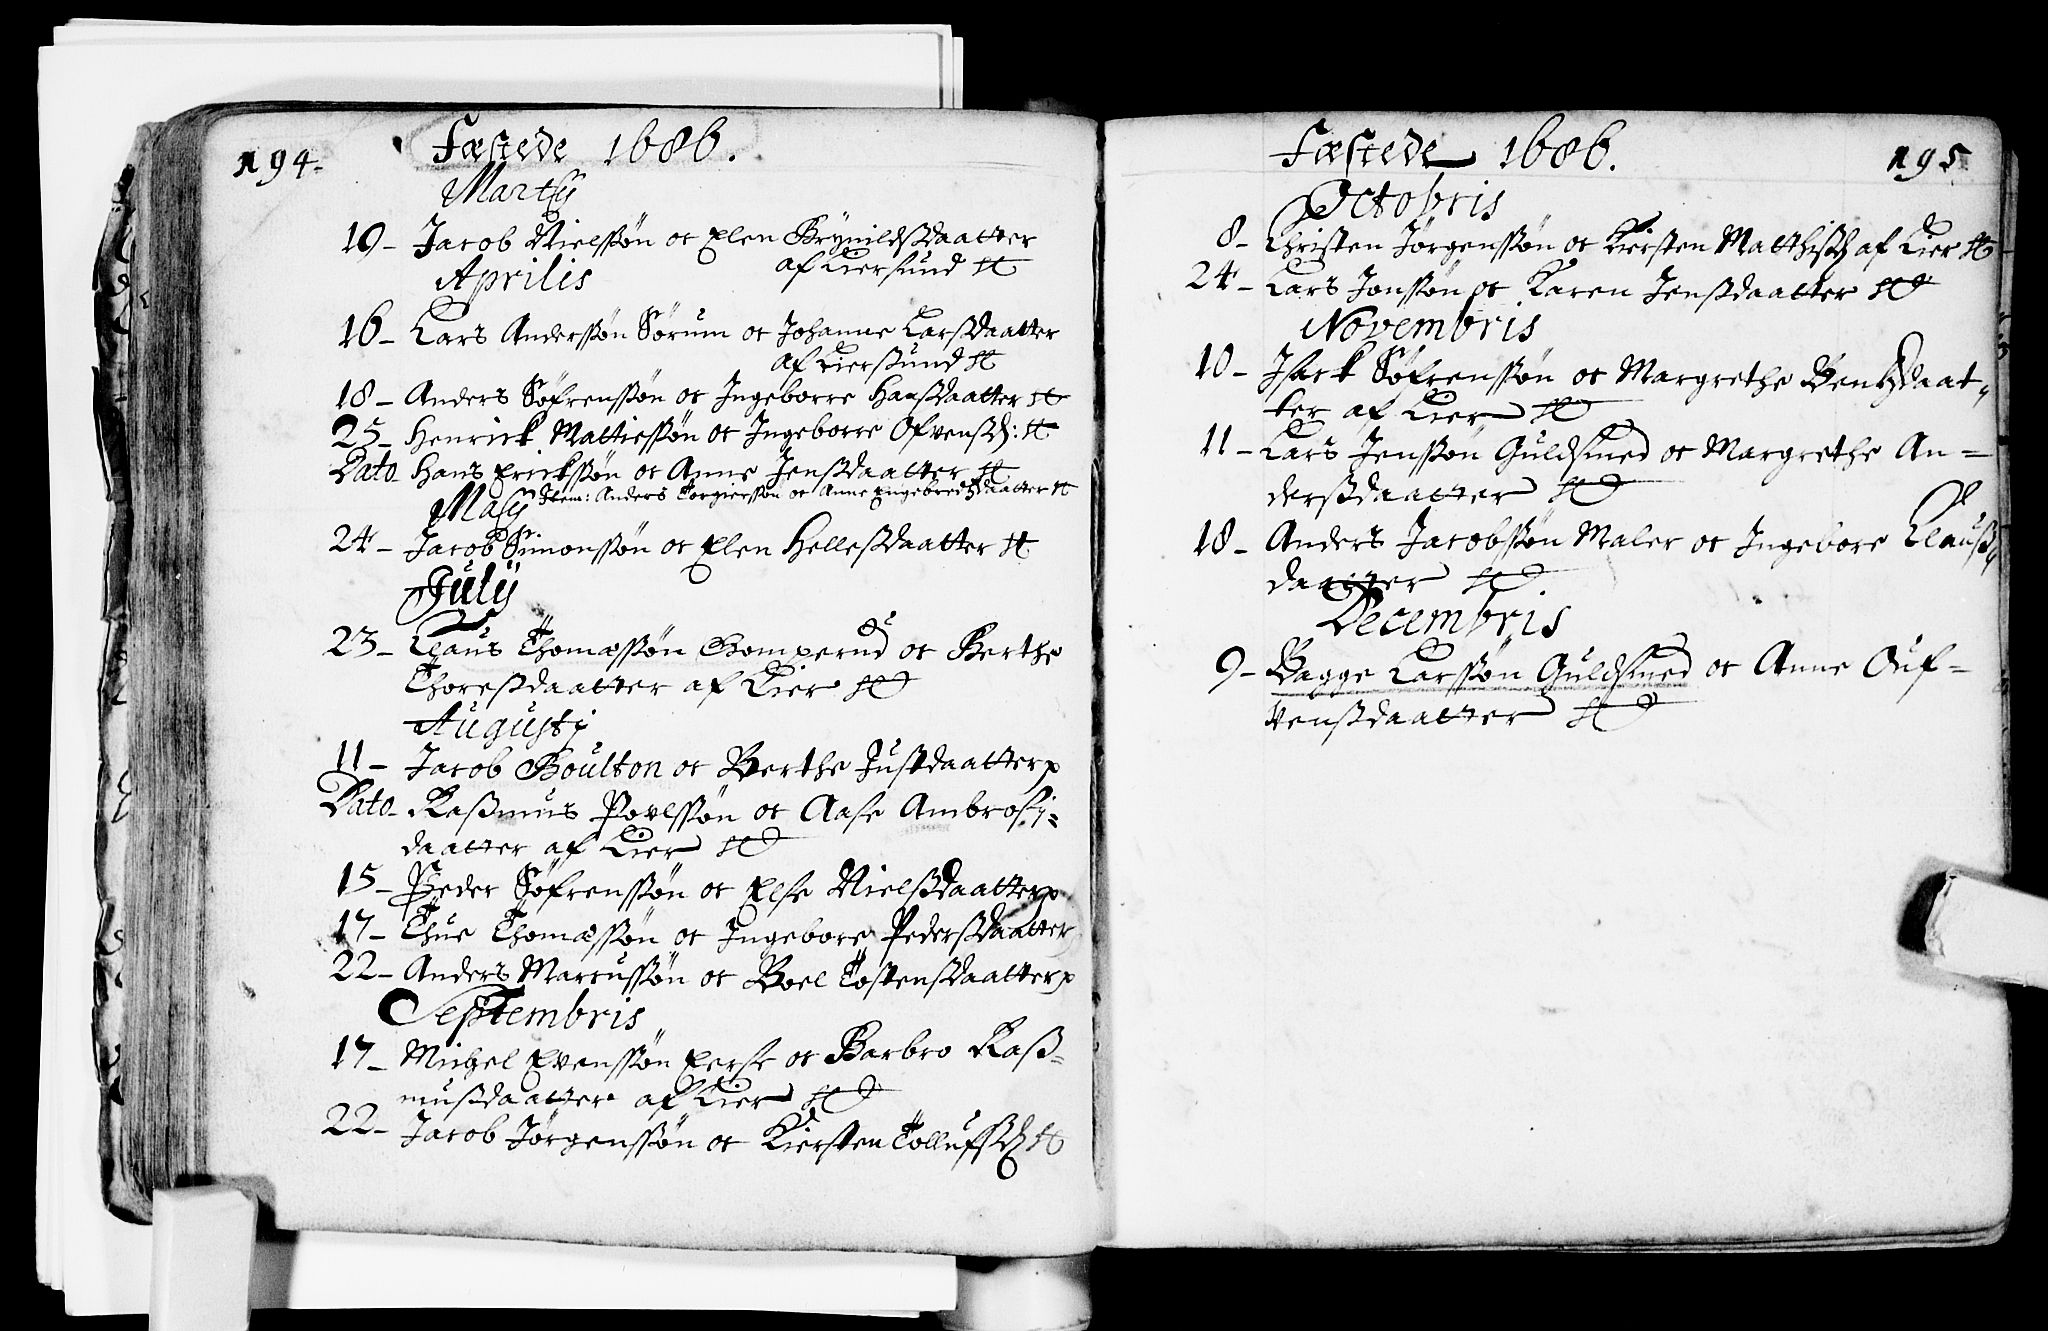 194.
Fæstede 1686.
Martij
19 - Jacob Nielssøn oc Elen Brynildsdaatter
af Kiersund
Aprilis
16 - Lars Anderssøn Sørum oc Johanne Larsdaatter
af Kiersund
18 - Anders Søfrenssøn oc Ingeborre Hansdaatter
25 - Henrick Mattiessøn oc Ingeborre Ofvensd:
Dato - Hans Erickssøn oc Anne Jensdaatter
Item: Anders Torgierssøn oc Anne Engebredtzdaatter
Maij
24 - Jacob Simonssøn oc Elen Hellesdaatter
Julij
23 - Claus Thomæssøn Gomperud oc Berthe
Thoresdaatter af Lier
Augusti
11 - Jacob Boulton oc Berthe Justdaatter
Dato - Rasmus Povlssøn oc Aase Ambrosij=
daatter af Lier
15 - Peder Søfrenssøn oc Else Nielsdaatter
17 - Thue Thomæssøn oc Ingebore Pedersdaatter
22 - Anders Marcussøn oc Boel Tostensdaatter
Septembris
17 - Michel Evenssøn oc Barbro Ras=
musdaatter af Lier
22 - Jacob Jørgenssøn oc Kiersten Tollufsd
195
Fæstede 1686.
Octobris
8 - Christen Jørgenssøn oc Kiersten Matthisd af Lier
24 - Lars Jonssøn oc Karen Jensdaatter
Novembris
10 - Isack Søfrenssøn oc Margrethe Bentzdaat=
ter af Lier
11 - Lars Jenssøn Guldsmed oc Margrethe An=
dersdaatter
18 - Anders Jacobssøn Maler oc Ingebore Claus=
daatter
Decembris
9 - Bagge Larssøn Guldsmed oc Anne Ouf=
vensdaatter